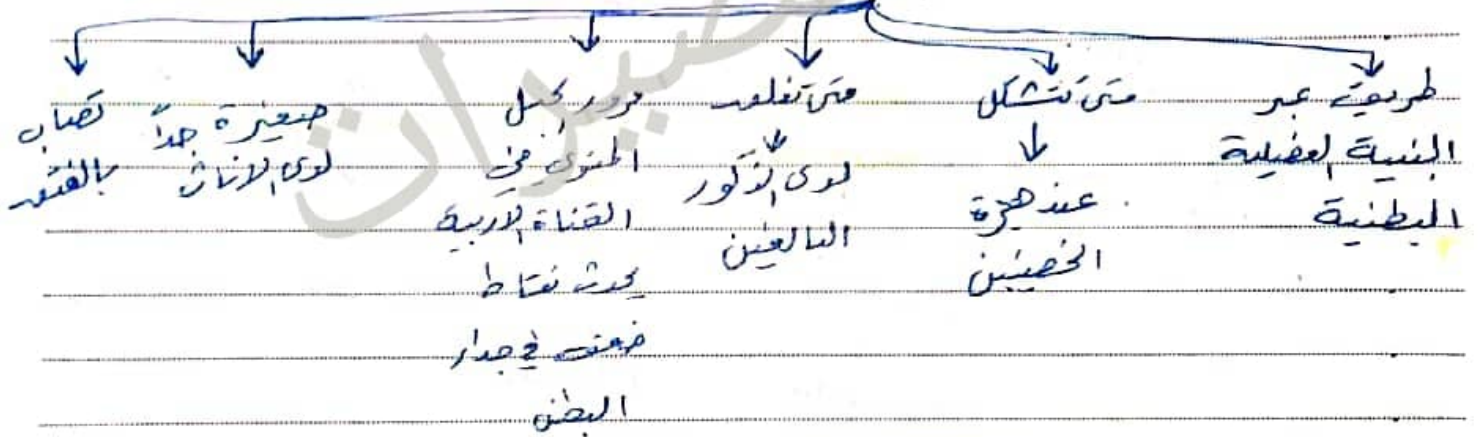 طريق عبر
البنية العضلية
البطنية
متى تتشكل
عند هجرة
الخصيتين
متى تغلق
لدى الذكور
البالغين
مرور الحبل
المنوي في
القناة الاربية
يحدث نقاط
ضعف في جدار
البطن
صغيرة جداً
لدى الاناث
تصاب
بالفتق